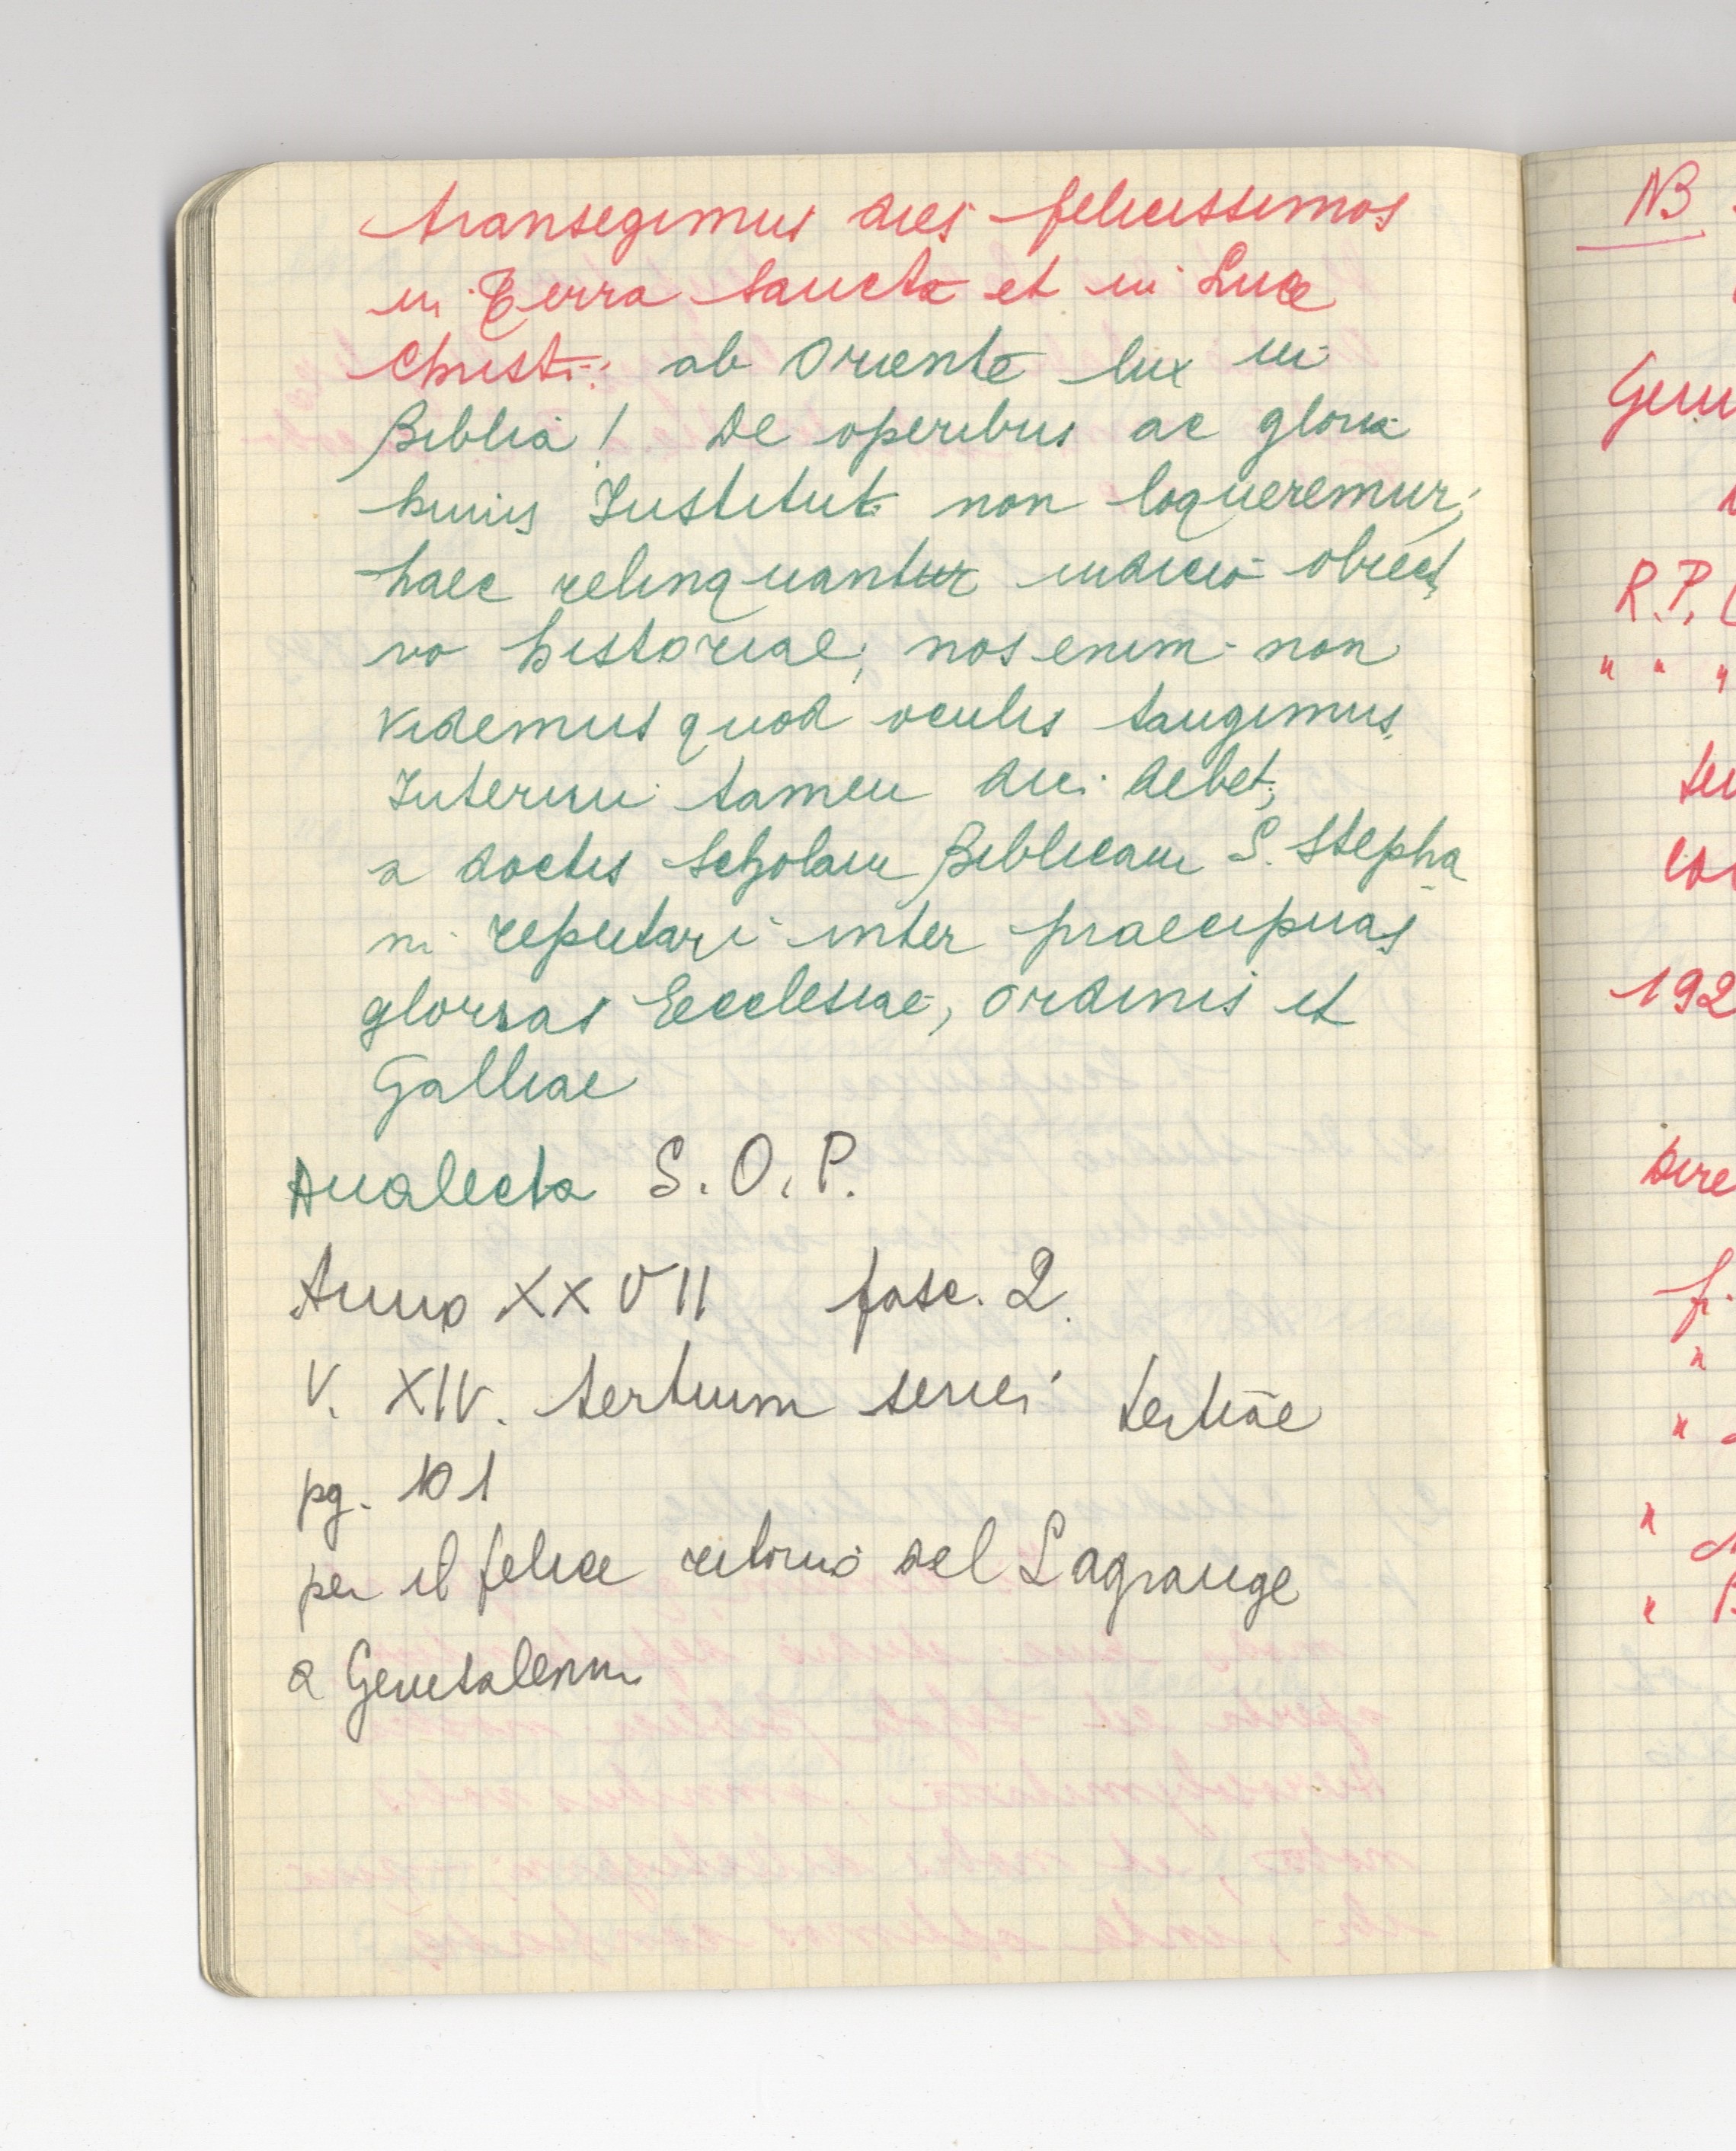 transegimus dies felicissimos
in Terra Sancta et in Luce
Christi: ab Oriente lux in
Biblia! De operibus ac gloria
huius Instituti non loqueremur;
haec relinquantur iudicio obiecti
vo historiae; nos enim non
videmus quod oculis tangimus.
Interim tamen dici debet,
a doctis Scholam Biblicam S. Stepha
ni reputari inter praecipuas
glorias Ecclesiae, Ordinis et
Galliae
Analecta S.O.P.
Anno XXVII fasc. 2.
V. XIV. tertium seriei tertiae
pg. 101
per il felice ritorno del Lagrange
a Gerusalemm
NB
R.P.
" " "
192
fr.
"
"
"
"